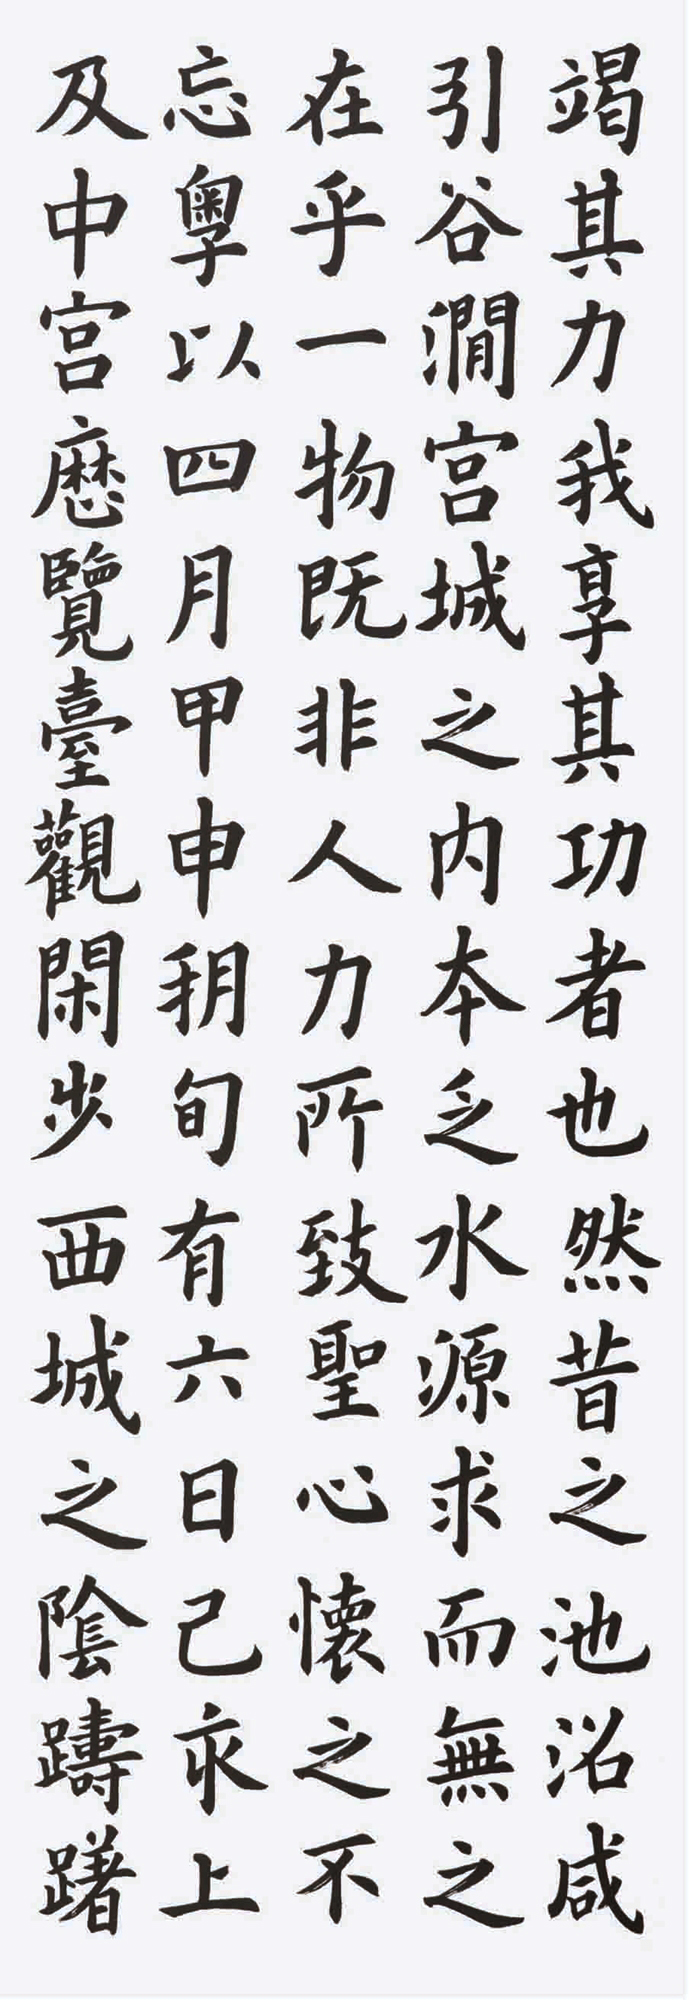 竭其力我享其功者也然昔之池沼咸
引谷澗宫城之内本乏水源求而無之
在乎一物既非人力所致聖心懷之不
忘粵以四月甲申朔旬有六日己亥上
及中宫歷覽臺觀閑步西城之陰躊躇